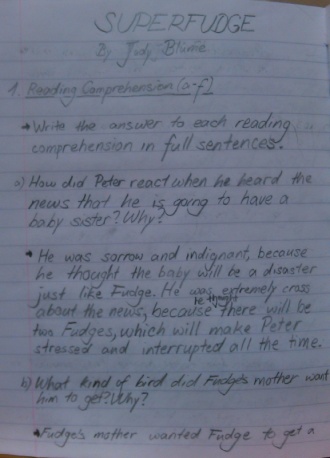 SUPERFUDGE
By Judy Blume
1. Reading Comprehension (a-f)
→ Write the answer to each reading
comprehension in full sentences.
a) How did Peter react when he heard the
news that he is going to have a
baby sister? Why?
• He was sorrow and indignant, because
he thought the baby will be a disaster
just like Fudge. He was extremely cross
about the news, because he thought there will be
two Fudges, which will make Peter
stressed and interrupted all the time.
b) What kind of bird did Fudge's mother want
him to get? Why?
• Fudge's mother wanted Fudge to get a